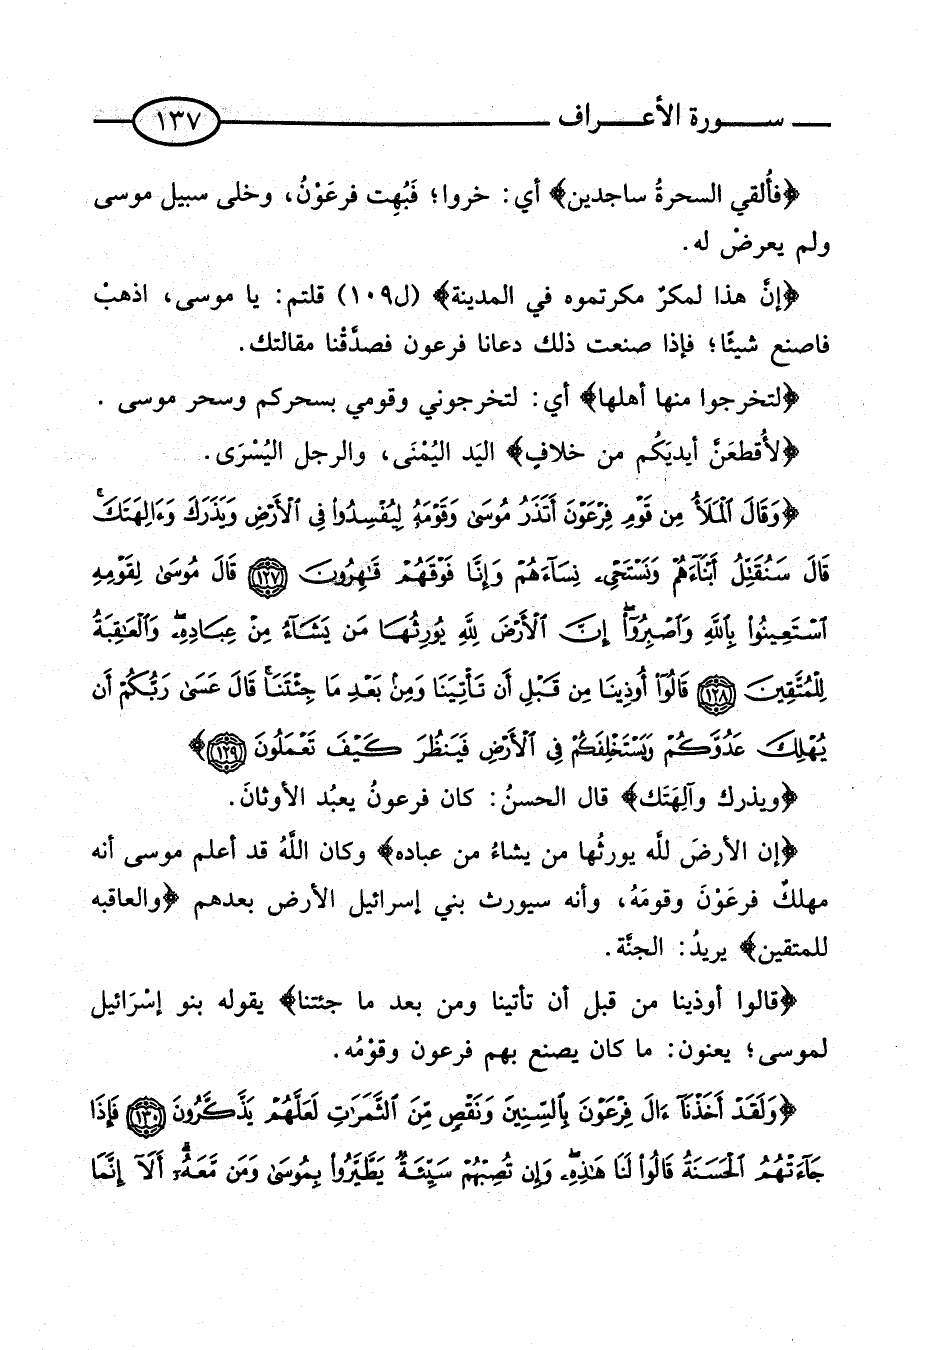 سورة الأعراف ١٣٧
﴿فأُلقي السحرةُ ساجدين﴾ أي: خروا؛ فَبُهِت فرعَوْنُ، وخلى سبيل موسى
ولم يعرضْ له.
﴿إنَّ هذا لمكرٌ مكرتموه في المدينة﴾ (ل١٠٩) قلتم: يا موسى، اذهبْ
فاصنع شيئًا؛ فإذا صنعت ذلك دعانا فرعون فصدَّقْنا مقالتك.
﴿لتخرجوا منها أهلها﴾ أي: لتخرجوني وقومي بسحركم وسحر موسى .
﴿لأُقطعَنَّ أيديَكُم من خلافٍ﴾ اليَد اليُمْنَى، والرجل اليُسْرَى.
﴿وَقَالَ ٱلْمَلَأُ مِن قَوْمِ فِرْعَوْنَ أَتَذَرُ مُوسَىٰ وَقَوْمَهُۥ لِيُفْسِدُوا۟ فِى ٱلْأَرْضِ وَيَذَرَكَ وَءَالِهَتَكَ ۚ
قَالَ سَنُقَتِّلُ أَبْنَآءَهُمْ وَنَسْتَحْىِۦ نِسَآءَهُمْ وَإِنَّا فَوْقَهُمْ قَـٰهِرُونَ ١٢٧ قَالَ مُوسَىٰ لِقَوْمِهِ
ٱسْتَعِينُوا۟ بِٱللَّهِ وَٱصْبِرُوٓا۟ ۖ إِنَّ ٱلْأَرْضَ لِلَّهِ يُورِثُهَا مَن يَشَآءُ مِنْ عِبَادِهِۦ ۖ وَٱلْعَـٰقِبَةُ
لِلْمُتَّقِينَ ١٢٨ قَالُوٓا۟ أُوذِينَا مِن قَبْلِ أَن تَأْتِيَنَا وَمِنۢ بَعْدِ مَا جِئْتَنَا ۚ قَالَ عَسَىٰ رَبُّكُمْ أَن
يُهْلِكَ عَدُوَّكُمْ وَيَسْتَخْلِفَكُمْ فِى ٱلْأَرْضِ فَيَنظُرَ كَيْفَ تَعْمَلُونَ ١٢٩﴾
﴿ويذرك وآلِهَتَك﴾ قال الحسنُ: كان فرعونُ يعبُد الأوثانَ.
﴿إن الأرضَ للَّه يورثُها من يشاءُ من عباده﴾ وكان اللَّهُ قد أعلم موسى أنه
مهلكٌ فرعَوْنَ وقومَهُ، وأنه سيورث بني إسرائيل الأرض بعدهم ﴿والعاقبه
للمتقين﴾ يريدُ: الجنَّة.
﴿قالوا أوذينا من قبل أن تأتينا ومن بعد ما جئتنا﴾ يقوله بنو إسْرَائيل
لموسى؛ يعنون: ما كان يصنع بهم فرعون وقوْمُه.
﴿وَلَقَدْ أَخَذْنَآ ءَالَ فِرْعَوْنَ بِٱلسِّنِينَ وَنَقْصٍ مِّنَ ٱلثَّمَرَٰتِ لَعَلَّهُمْ يَذَّكَّرُونَ ١٣٠ فَإِذَا
جَآءَتْهُمُ ٱلْحَسَنَةُ قَالُوا۟ لَنَا هَـٰذِهِۦ ۖ وَإِن تُصِبْهُمْ سَيِّئَةٌ يَطَّيَّرُوا۟ بِمُوسَىٰ وَمَن مَّعَهُۥٓ ۗ أَلَآ إِنَّمَا